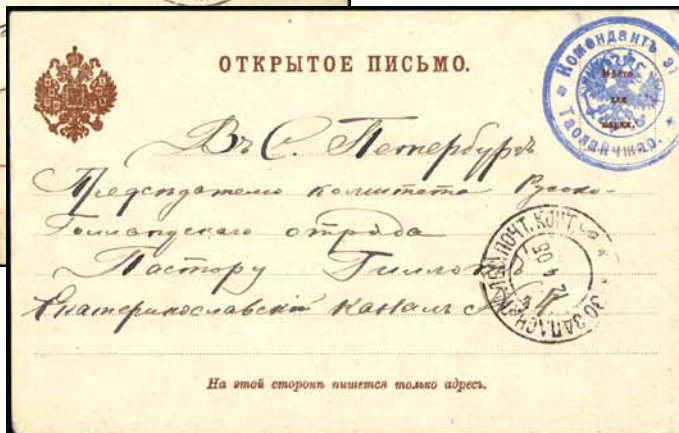 ОТКРЫТОЕ ПИСЬМО.
Комендантъ эт
Таоланчжао.
Мѣсто
для
марки.
Въ С. Петербургъ
Предсѣдателю комитета Русско-
Голландскаго отряда
Пастору
Екатеринославскій каналъ
ПОЧТ. КОНТ.
ЗАПАСН.
На этой сторонѣ пишется только адресъ.